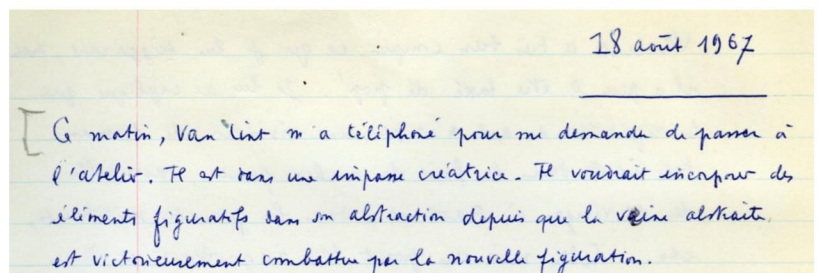 18 août 1967
[ Ce matin, Van Lint m'a téléphoné pour me demander de passer à
l'atelier. Il est dans une impasse créatrice. Il voudrait incorporer des
éléments figuratifs dans son abstraction depuis que la veine abstraite
est victorieusement combattue par la nouvelle figuration.